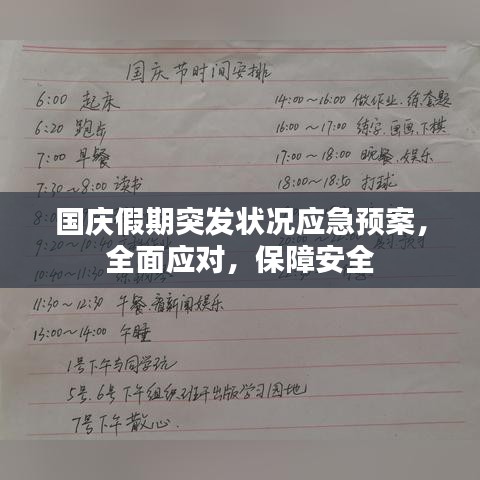 国庆节时间安排
6:00 起床
6:20 跑步
7:00 早餐
7:30~8:00 读书
11:30~12:30 午餐、看新闻娱乐
13:00~14:00 午睡
1号下午与同学玩
5号、6号下午组织班干出版学习园地
7号下午散心.
14:00~16:00 做作业、练套题
16:00~17:00 练字、画画、下棋
17:00~18:00 晚餐、娱乐
18:00~18:50 打球
国庆假期突发状况应急预案，
全面应对，保障安全